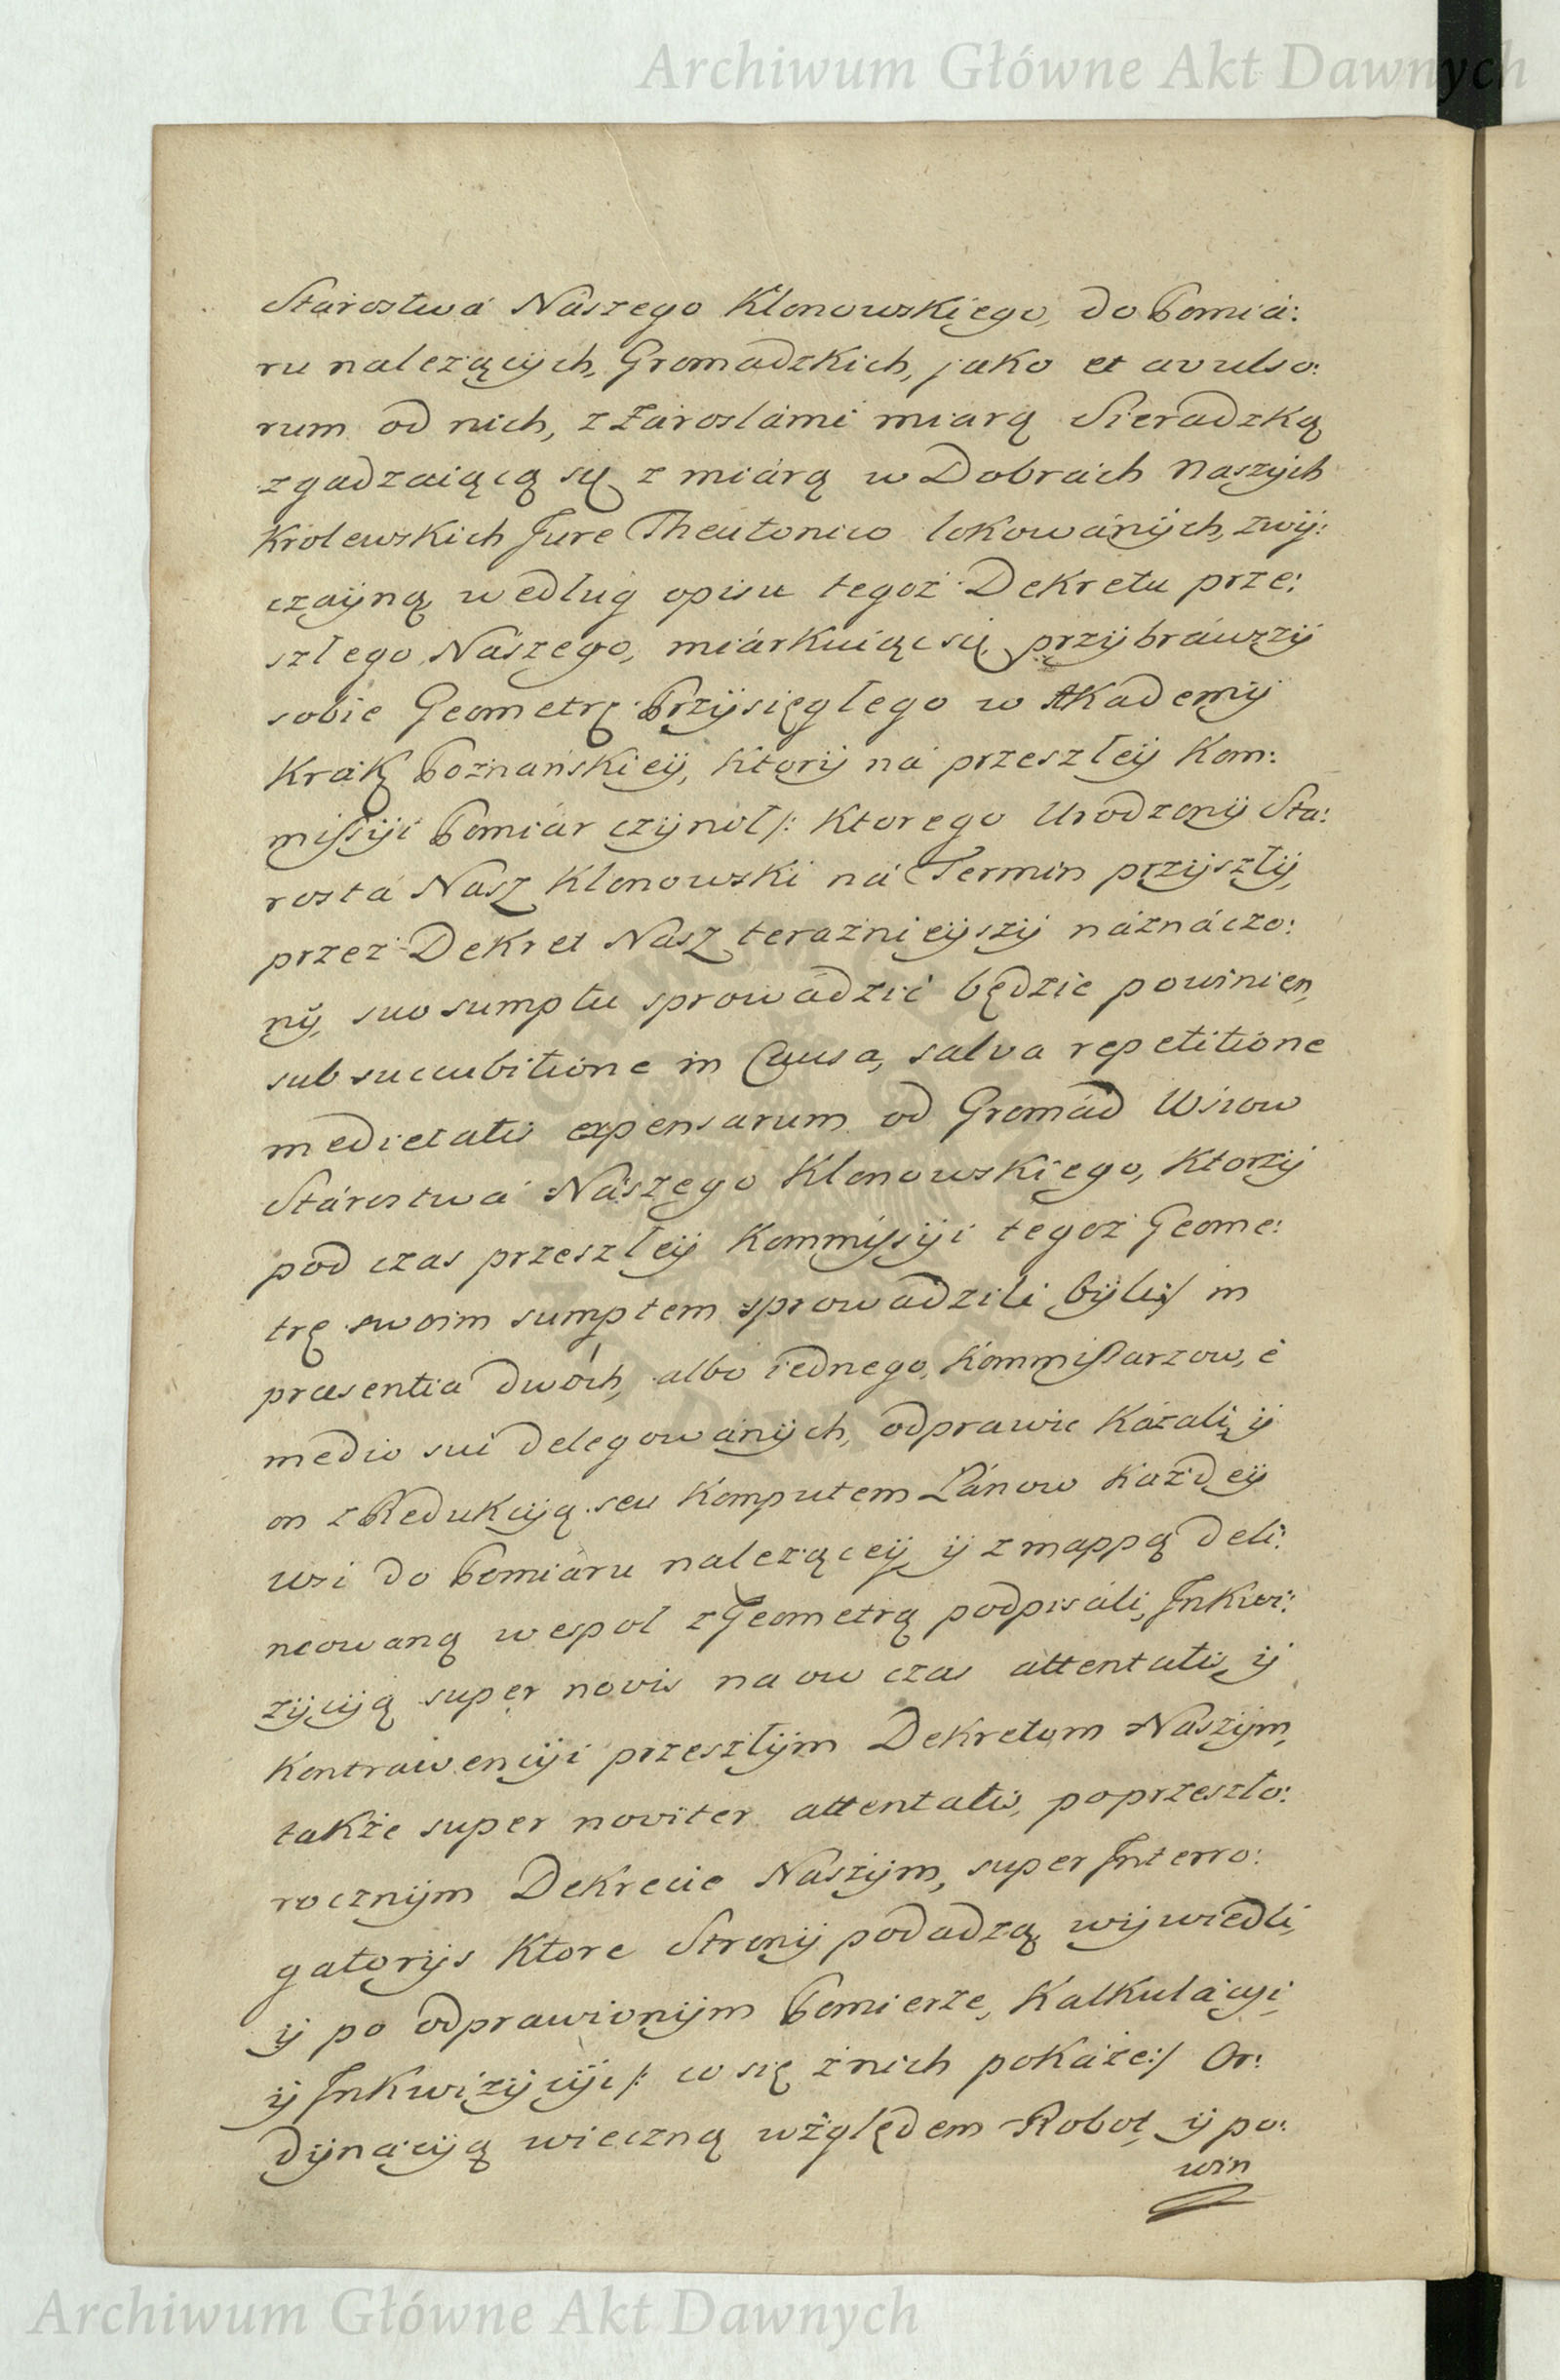 Archiwum Główne Akt Dawnych
Starostwá Nászego Klonowskięgo, do Pomiá:
ru nalezących, Gromadzkich, jako et avulso:
rum od nich, z Zároslámi miarą Sieradzką
zgadzaiącą się z miárą w Dobrách Naszÿch
Krolewskich Jure Theutonico lokowánÿch, zwÿ:
czaÿną według opisu tegoż Dekretu prze:
szłego Nászego, miárkuiąc się, przÿbráwszÿ
sobie Geometrę Przÿsięgłego w Akademÿ
Krak Poznańskieÿ, ktorÿ ná przeszłeÿ Kom:
missÿi Pomiár czÿnił /: Ktorego Urodzonÿ Sta:
rostá Nasz Klonowski ná Termin przÿszłÿ,
przez Dekret Nasz teraznieÿszÿ náznáczo:
nÿ, suo sumptu sprowádzić będzie powinien,
sub succubitione in Causa, salva repetitione
medietatis expensarum od Gromád Wsiow
Stárostwá Nászego Klonowskięgo, Ktorzÿ
pod czas przeszłeÿ Kommissÿi tegoż Geome:
trę swoim sumptem sprowádzili bÿli :/ in
præsentia dwóch, albo iednego, Kommissarzow, é
medio sui delegowánÿch, odprawić kázali, ÿ
on z Redukcÿą seu Komputem Łánow każdeÿ
wsi do Pomiáru naleząceÿ, ÿ z mappą deli:
neowaną wespoł z Geometrą podpisáli, Inkwi:
zÿcÿą super novis na ow czas attentatis, ÿ
kontrawencÿi przeszłÿm Dekretom Naszÿm,
także super noviter attentatis, po przeszło:
rocznÿm Dekrecie Naszÿm, super Interro:
gatorÿs Ktore Stronÿ podadzą, wÿwiedli,
ÿ po odprawionÿm Pomierze, Kalkulácÿi,
ÿ Inkwizÿcÿi /: co się z nich pokáże :/ Or:
dÿnácÿą wieczną względem Robot, ÿ po:
win
Archiwum Główne Akt Dawnych